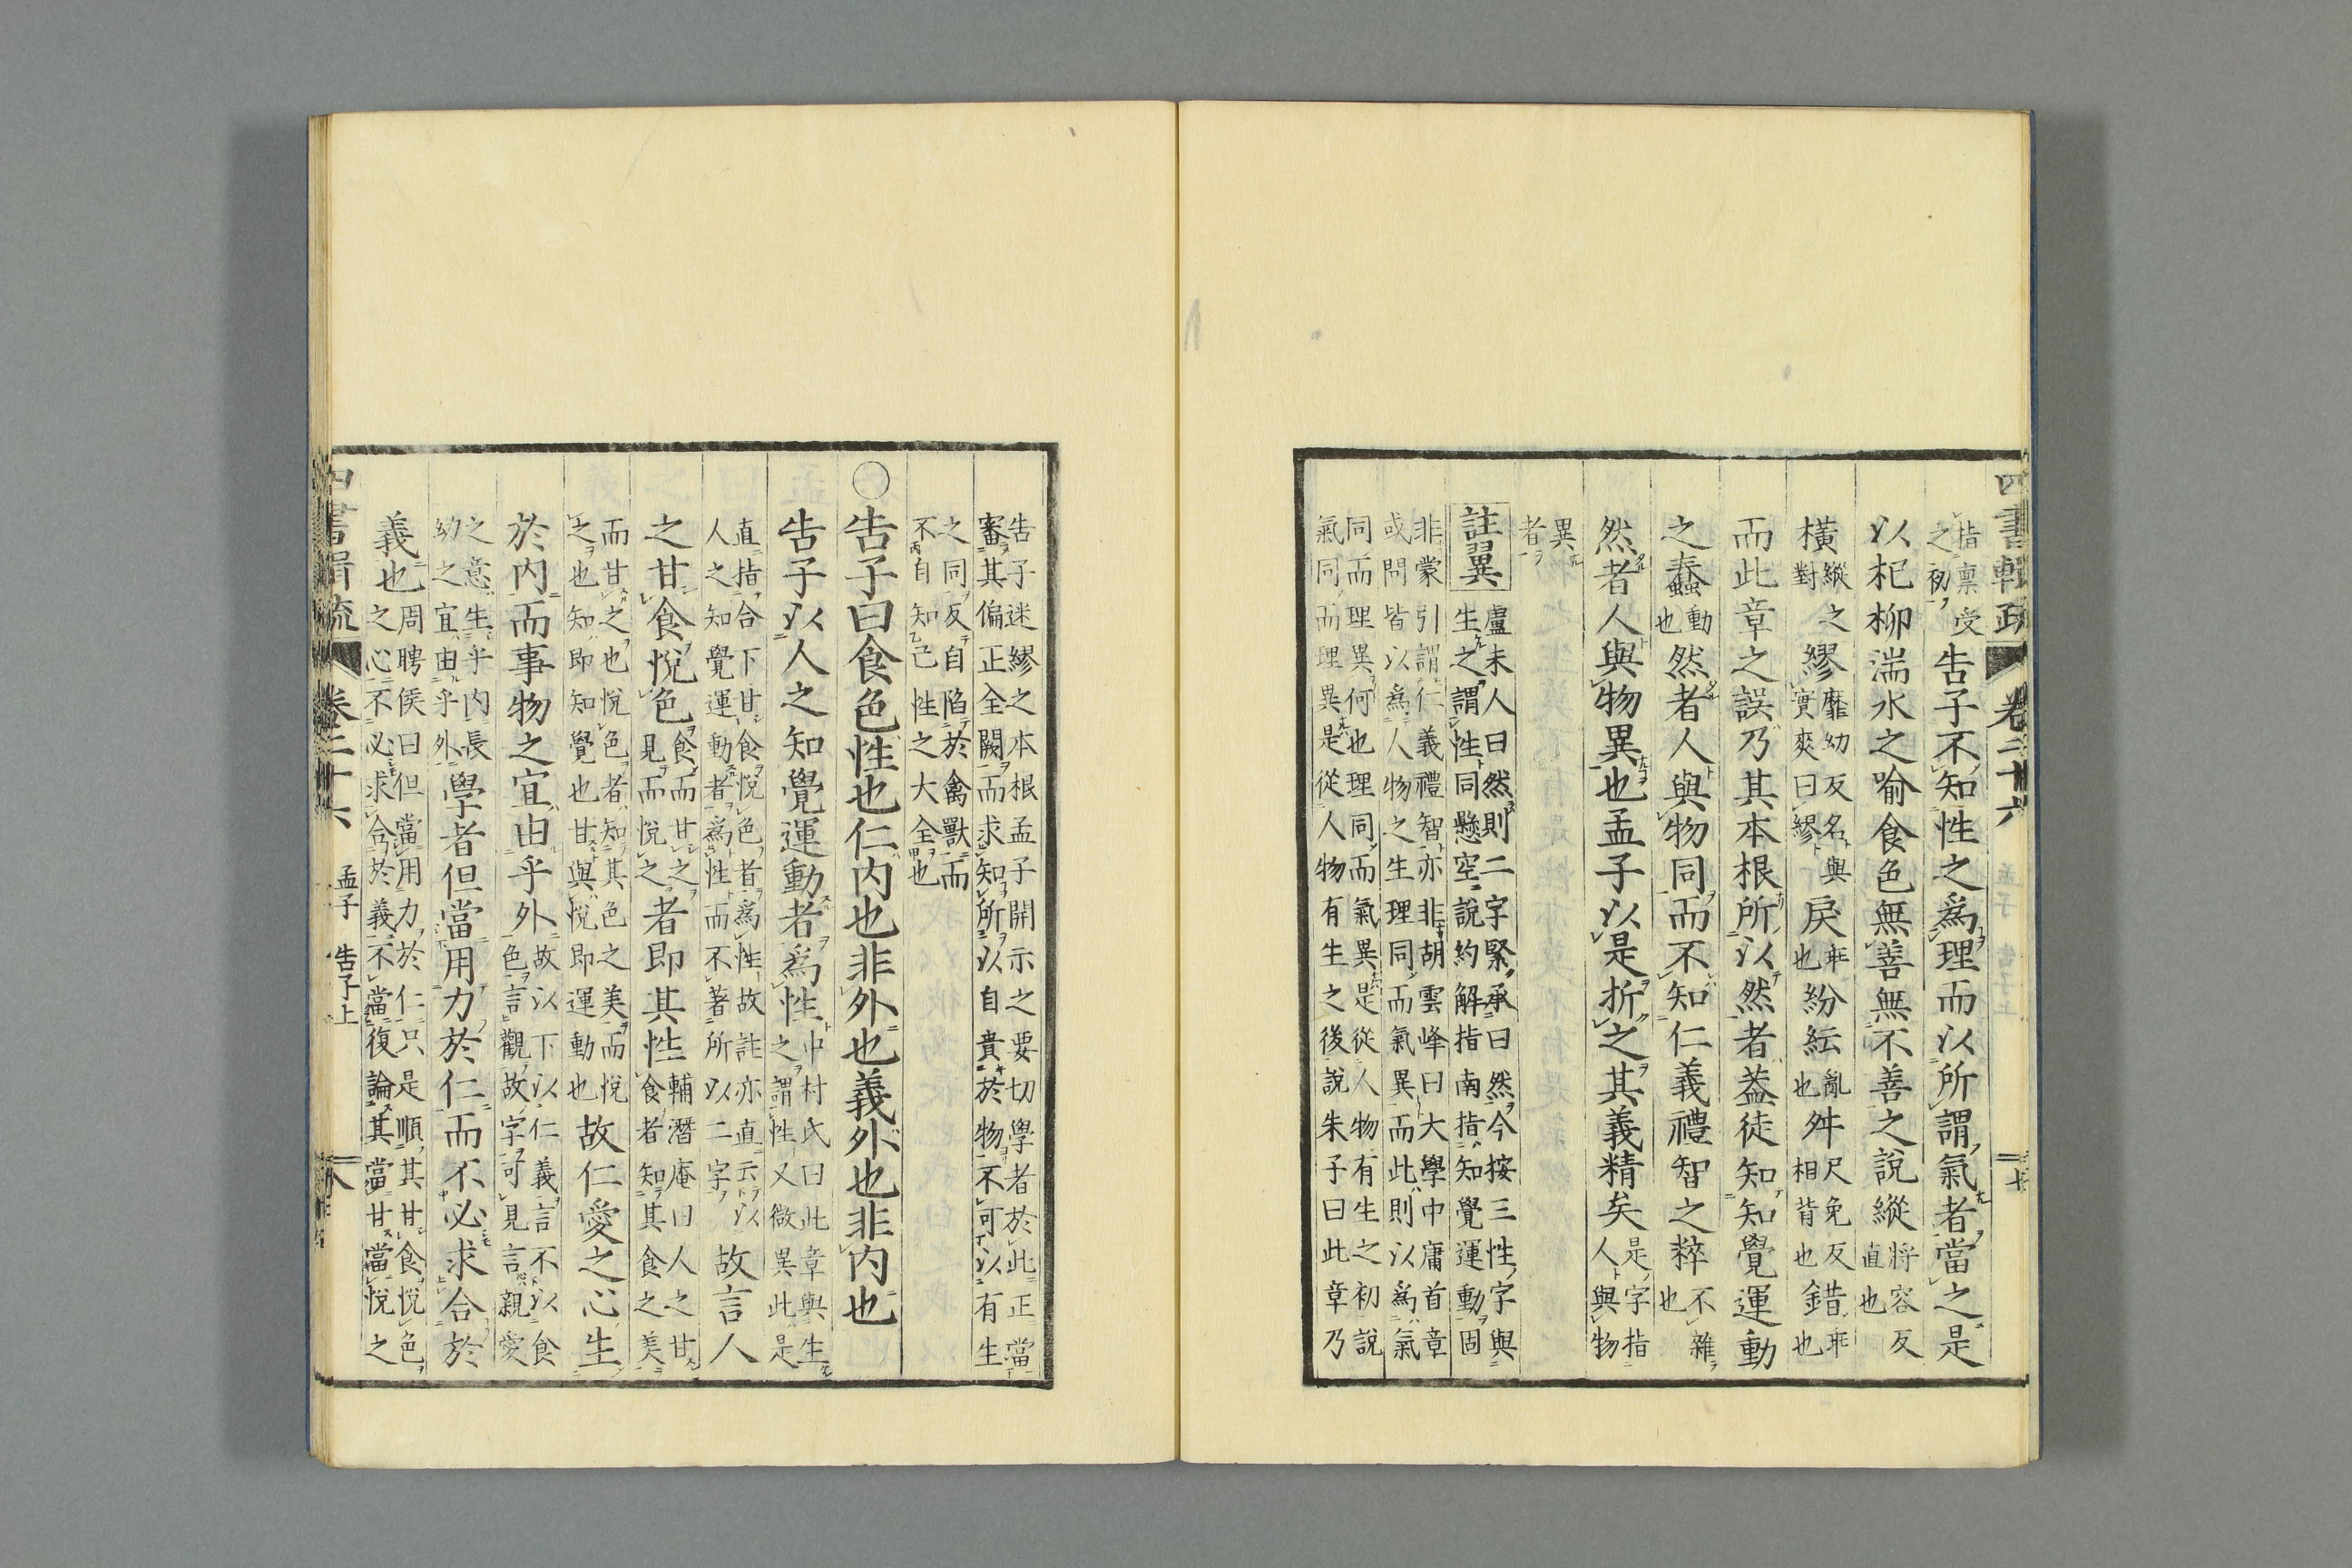 四書輯疏 卷二十六 孟子 告子上 七
指稟受之初告子不知性之爲理而以所謂氣者當之是
以杞柳湍水之喻食色無善無不善之說縱將容反直也
橫縱之對繆靡幼反名與實爽曰繆戾乖也紛紜亂也舛尺免反相背也錯乖也
而此章之誤乃其本根所以然者葢徒知知覺運動
之蠢動也然者人與物同而不知仁義禮智之粹不雜也
然者人與物異也孟子以是折之其義精矣是字指人與物
異者
註翼
盧未人曰然則二字緊承曰然今按三性字與
生之謂性同懸空說約解指南指知覺運動固
非蒙引謂仁義禮智亦非胡雲峰曰大學中庸首章
或問皆以爲人物之生理同而氣異而此則以爲氣
同而理異何也理同而氣異是從人物有生之初說
氣同而理異是從人物有生之後說朱子曰此章乃
告子迷繆之本根孟子開示之要切學者於此正當
審其偏正全闕而求知所以自貴於物不可以有生
之同反自陷於禽獸而
不自知己性之大全也
○告子曰食色性也仁内也非外也義外也非内也
告子以人之知覺運動者爲性中村氏曰此章與生之謂性又微異此是
直指合下甘食悅色者爲性故註亦直云以人之知覺運動者爲性而不著所以二字故言人
之甘食悅色食而甘之見而悅之者即其性輔潛庵曰人之甘食者知其食之美
而甘之也悅色者知其色之美而悅之也知即知覺也甘與悅即運動也故仁愛之心生
於内而事物之宜由乎外故以下以仁義言不以食色言觀故字可見言親愛
之意生乎内長幼之宜由乎外學者但當用力於仁而不必求合於
義也周聘侯曰但當用力於仁只是順其甘食悅色之心不必求合於義不當復論其當甘當悅之
四書輯疏 卷二十六 孟子 告子上 八